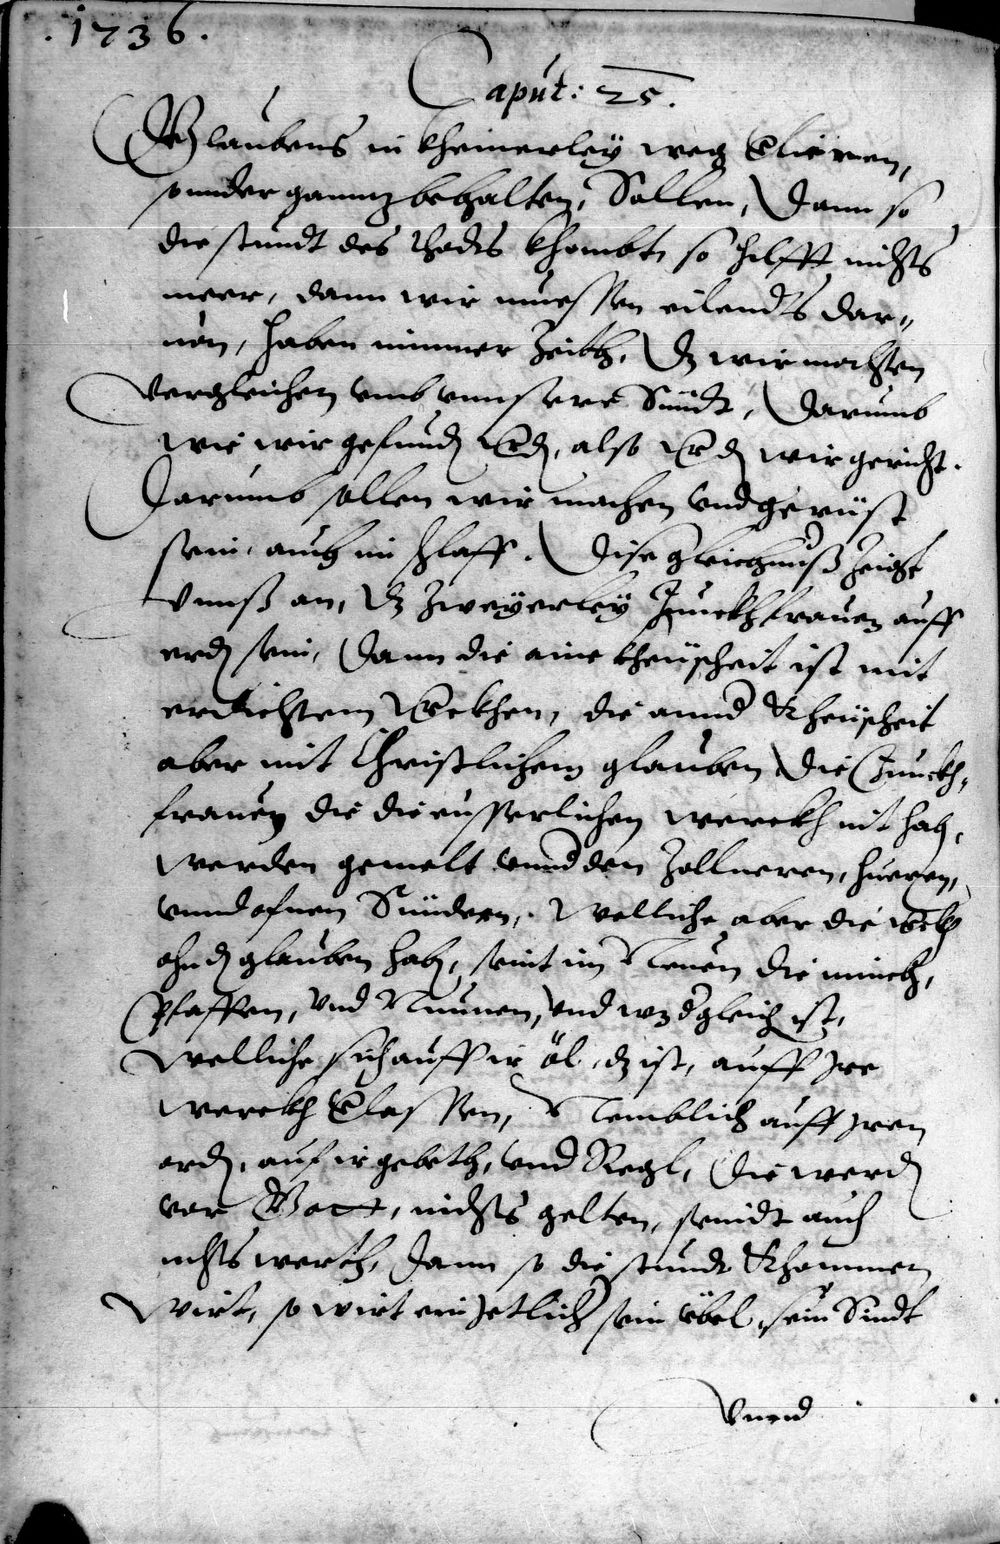 .1736.
Caput: 25.
Glaubens in kheinerley weg verlieren,
sunder ganntz behalten, Sollen, Dann so
die stundt des thodts khombt, so hilfft nichts
meer, dann wir muessen eilendts dar-
uon, haben nimmer Zeith, Dz wir mochten
vergleichen vmb vnnsere Sündt, Darumb
wie wir gefunden werden, also werden wir gericht.
Darumb sollen wir wachen vnd gerüst
sein, auch im schlaff. Dise gleichnuß zeigt
Vnnß an, Dz zweÿerleÿ Junckhfrauen auff
erden sein, Dann die aine kheüscheit ist mit
erdichtem Werkhen, die annder Kheüscheit
aber mit Christlichem glauben, Die Junckh-
frauen die die eusserlichen werckh nit haben,
werden gemelt vnnder den Zollneren, hueren,
vnnd ofnen Sünderen,. Welliche aber die werckh
ohn den glauben haben, seint im Neuen die münch,
Pfaffen, vnd Nunnen, vnd wz dergleich ist,
Welliche sich auff ir öl, dz ist, auff Jre
werckh verlassen, Nemblich auff Jren
orden, auf ir gebeth, vnd Regl, Die werden
vor Gott, nichts gelten, seindt auch
nichts werth, Dann so die stundt Khommen
wirt, so wirt ein Jetlicher sein übel, sein Sündt
Vnnd